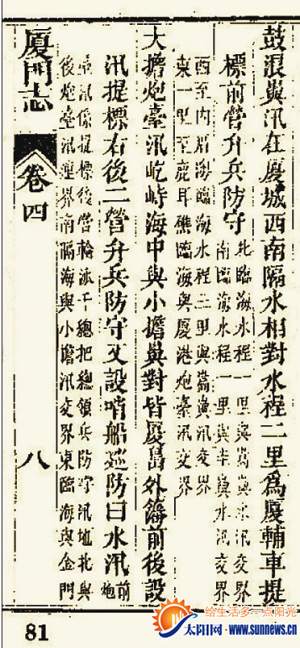 鼓浪嶼汛在廈城西南隔水相對水程二里為廈輔車提
標前營弁兵防守
北臨海水程一里與嵩嶼汛交界
南臨海水程一里與半嶼汛交界
西至內 海臨海水程二里與嵩嶼汛交界
東一里至鹿耳礁臨海與廈港炮臺汛交界
大擔炮臺汛屹峙海中與小擔嶼對皆廈島外 前後設
汛提標右後二營弁兵防守又設哨船巡防曰水汛
前
炮
臺汛係提標後營輪派千總把總領兵防守汛地北與
後炮臺汛連界南臨海與小擔汛交界東臨海與金門
廈門志
卷四
八
81
给生活多一点阳光
太阳网
www.sunnews.cn